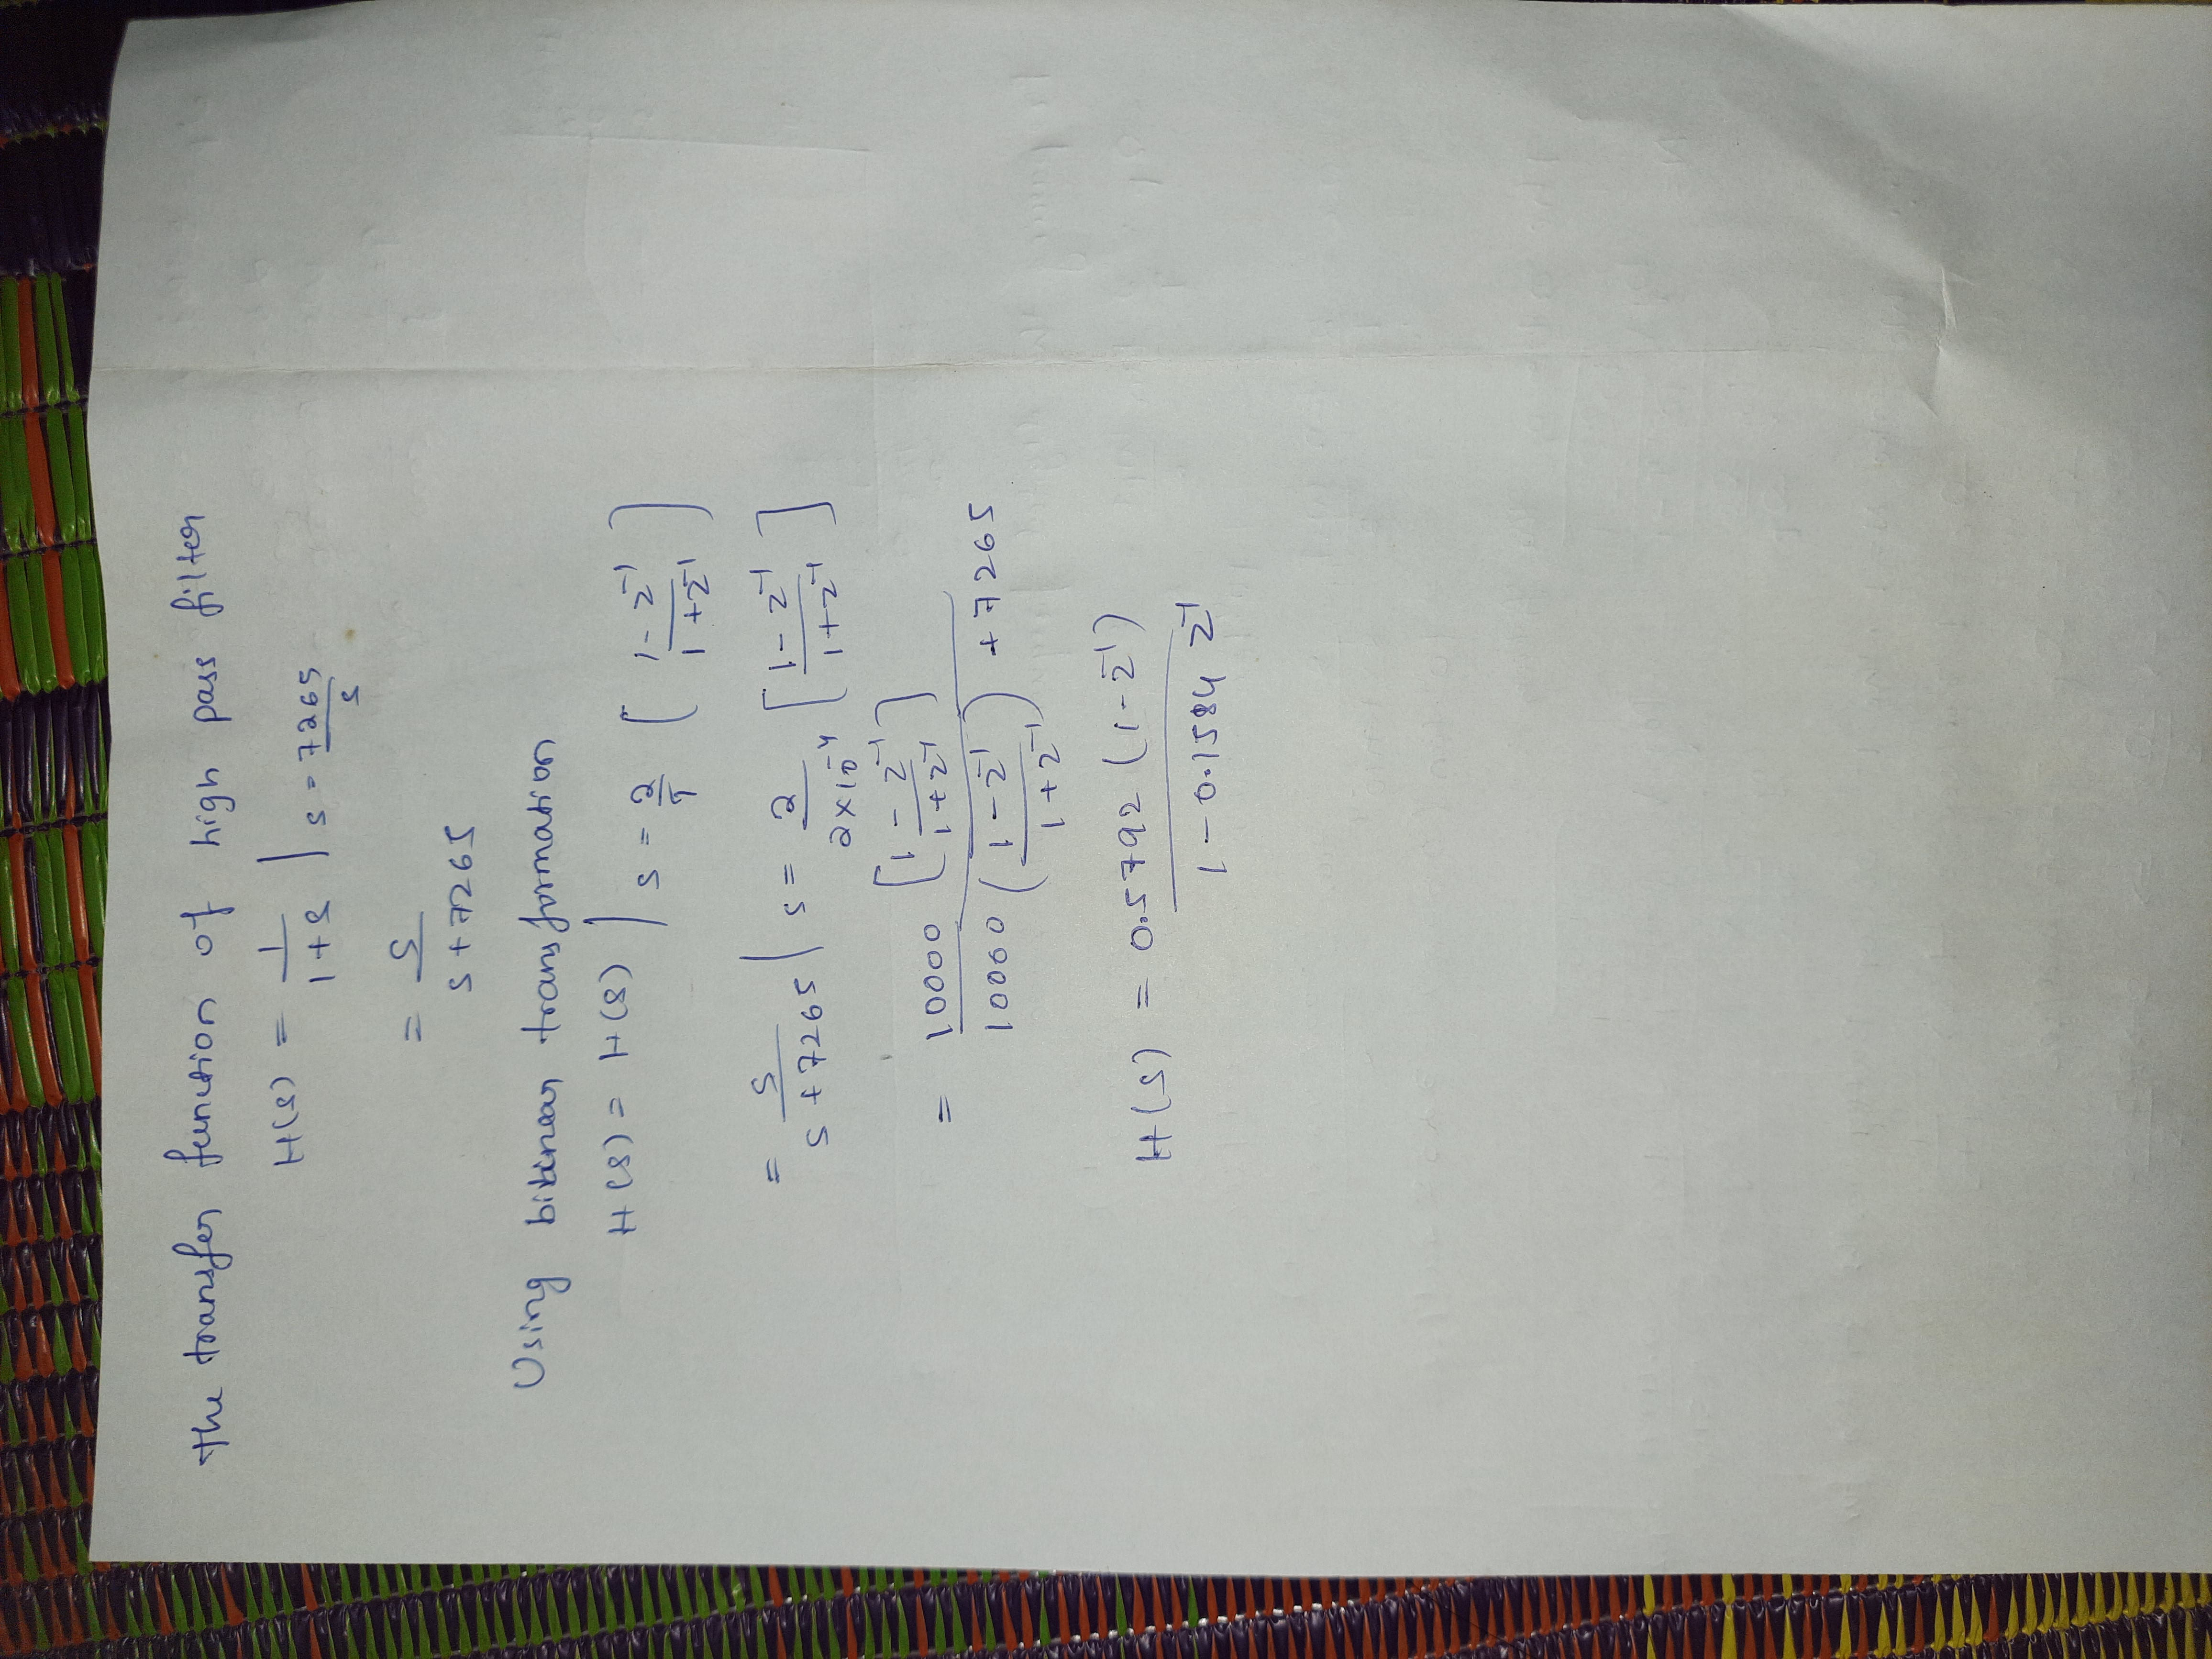 The transfer function of high pass filter
H(s) = 1/(1+s) | s = 7265/s
= s/(s+7265)
Using bilinear transformation
H(s) = H(s) | s = 2/T [ (1-z⁻¹)/(1+z⁻¹) ]
= s/(s+7265) | s = 2/(2×10⁻⁴) [ (1-z⁻¹)/(1+z⁻¹) ]
= 10000 [ (1-z⁻¹)/(1+z⁻¹) ] / 10000 ( (1-z⁻¹)/(1+z⁻¹) ) + 7265
H(s) = 0.5792 (1-z⁻¹) / 1-0.1584 z⁻¹